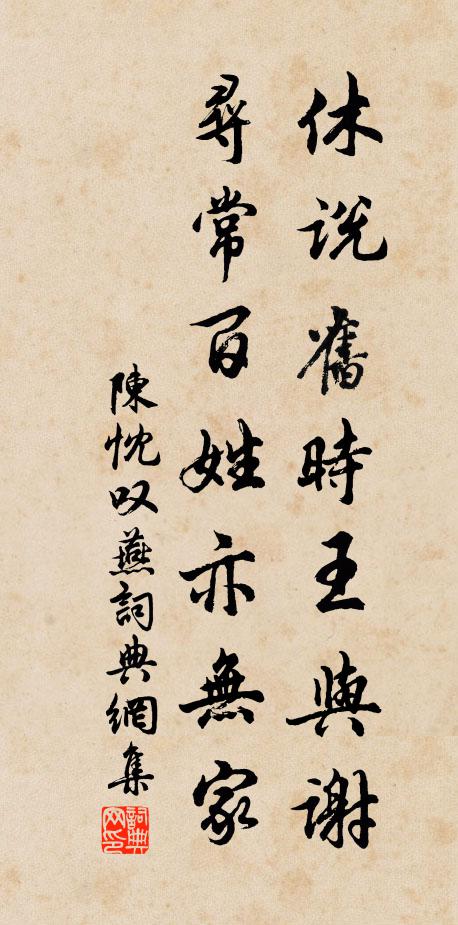 休说舊時王與谢
尋常百姓亦無家
陳忱叹燕詞典網集
詞典网印